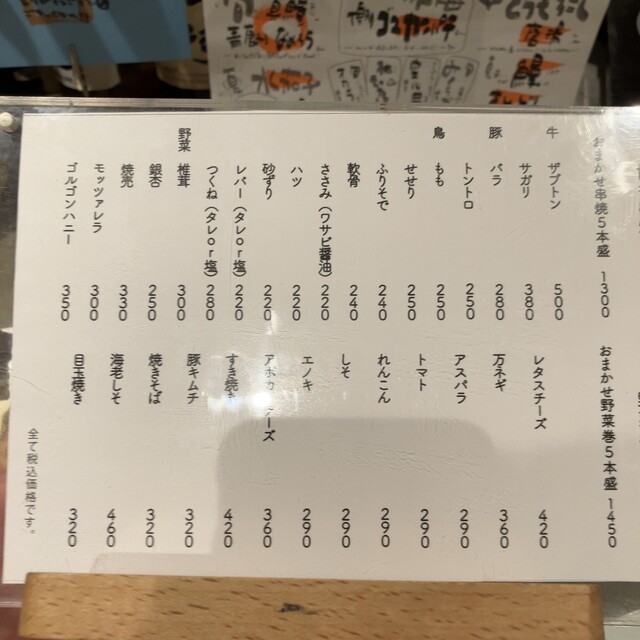 おまかせ串焼5本盛 1300
牛 ザブトン 500
サガリ 380
豚 バラ 280
トントロ 250
鳥 もも 250
せせり 250
ふりそで 240
軟骨 240
ささみ（ワサビ醤油） 220
ハツ 220
砂ずり 220
レバー（タレor塩） 220
つくね（タレor塩） 280
野菜 椎茸 300
銀杏 250
焼売 330
モッツァレラ 300
ゴルゴンハニー 350
おまかせ野菜巻5本盛 1450
レタスチーズ 420
万ネギ 360
アスパラ 290
トマト 290
れんこん 290
しそ 290
エノキ 290
アボカ ーズ 360
すき焼き 420
豚キムチ 320
焼きそば 320
海老しそ 460
目玉焼き 320
全て税込価格です。